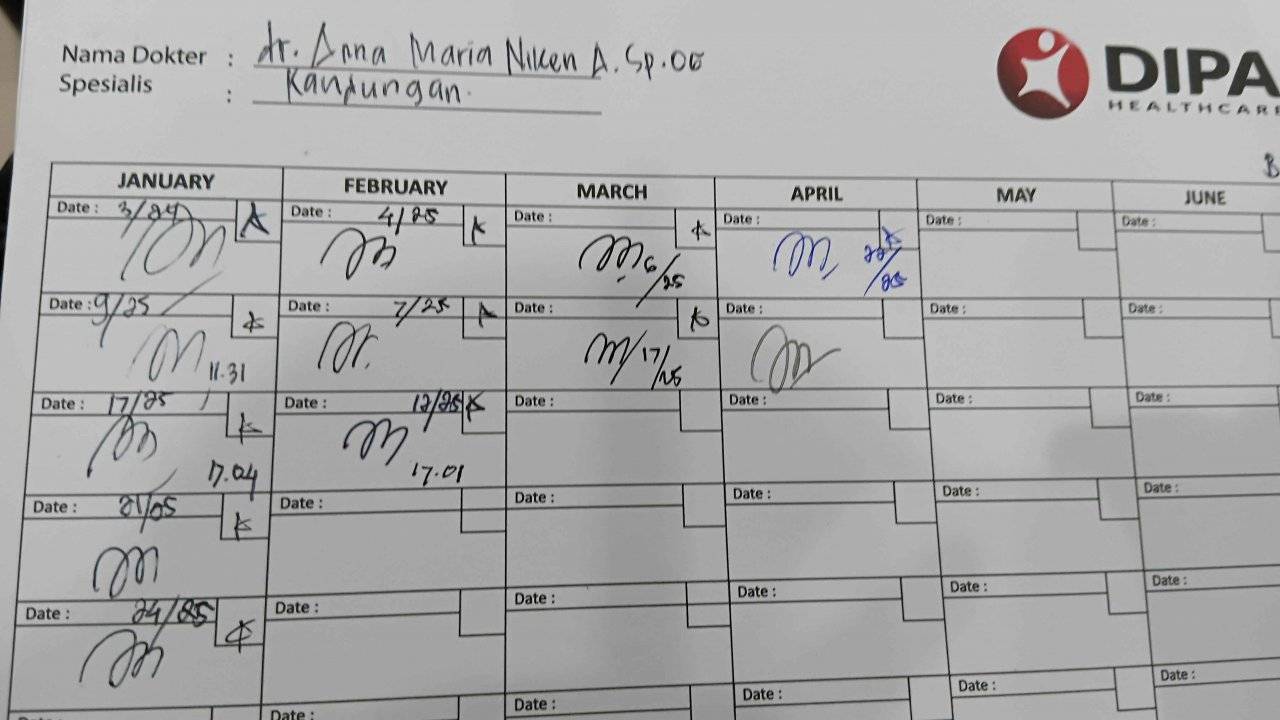 Nama Dokter : dr. Anna Maria Niken A. Sp.OG
Spesialis : Kandungan.
DIPA
HEALTHCARE
B
JANUARY FEBRUARY MARCH APRIL MAY JUNE
Date : 3/24 Date : 4/25 Date : Date : Date : Date :
6/25 22/25
Date : 9/25 Date : 7/25 Date : Date : Date : Date :
11.31 17/25
Date : 17/25 Date : 12/25 Date : Date : Date : Date :
17.04 17.01
Date : 21/25 Date : Date : Date : Date : Date :
Date : 24/25 Date : Date : Date : Date : Date :
Date : Date : Date : Date : Date : Date :